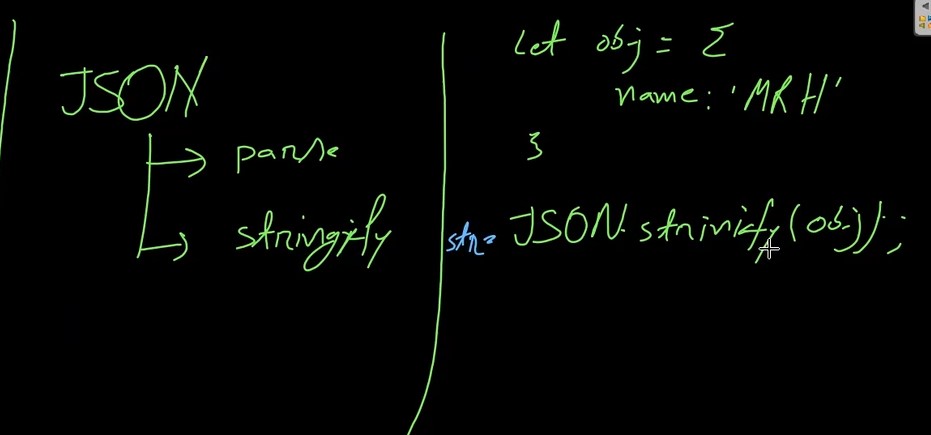 JSON
parse
stringify
Let obj = {
name: 'MRH'
}
str = JSON.strinify(obj);